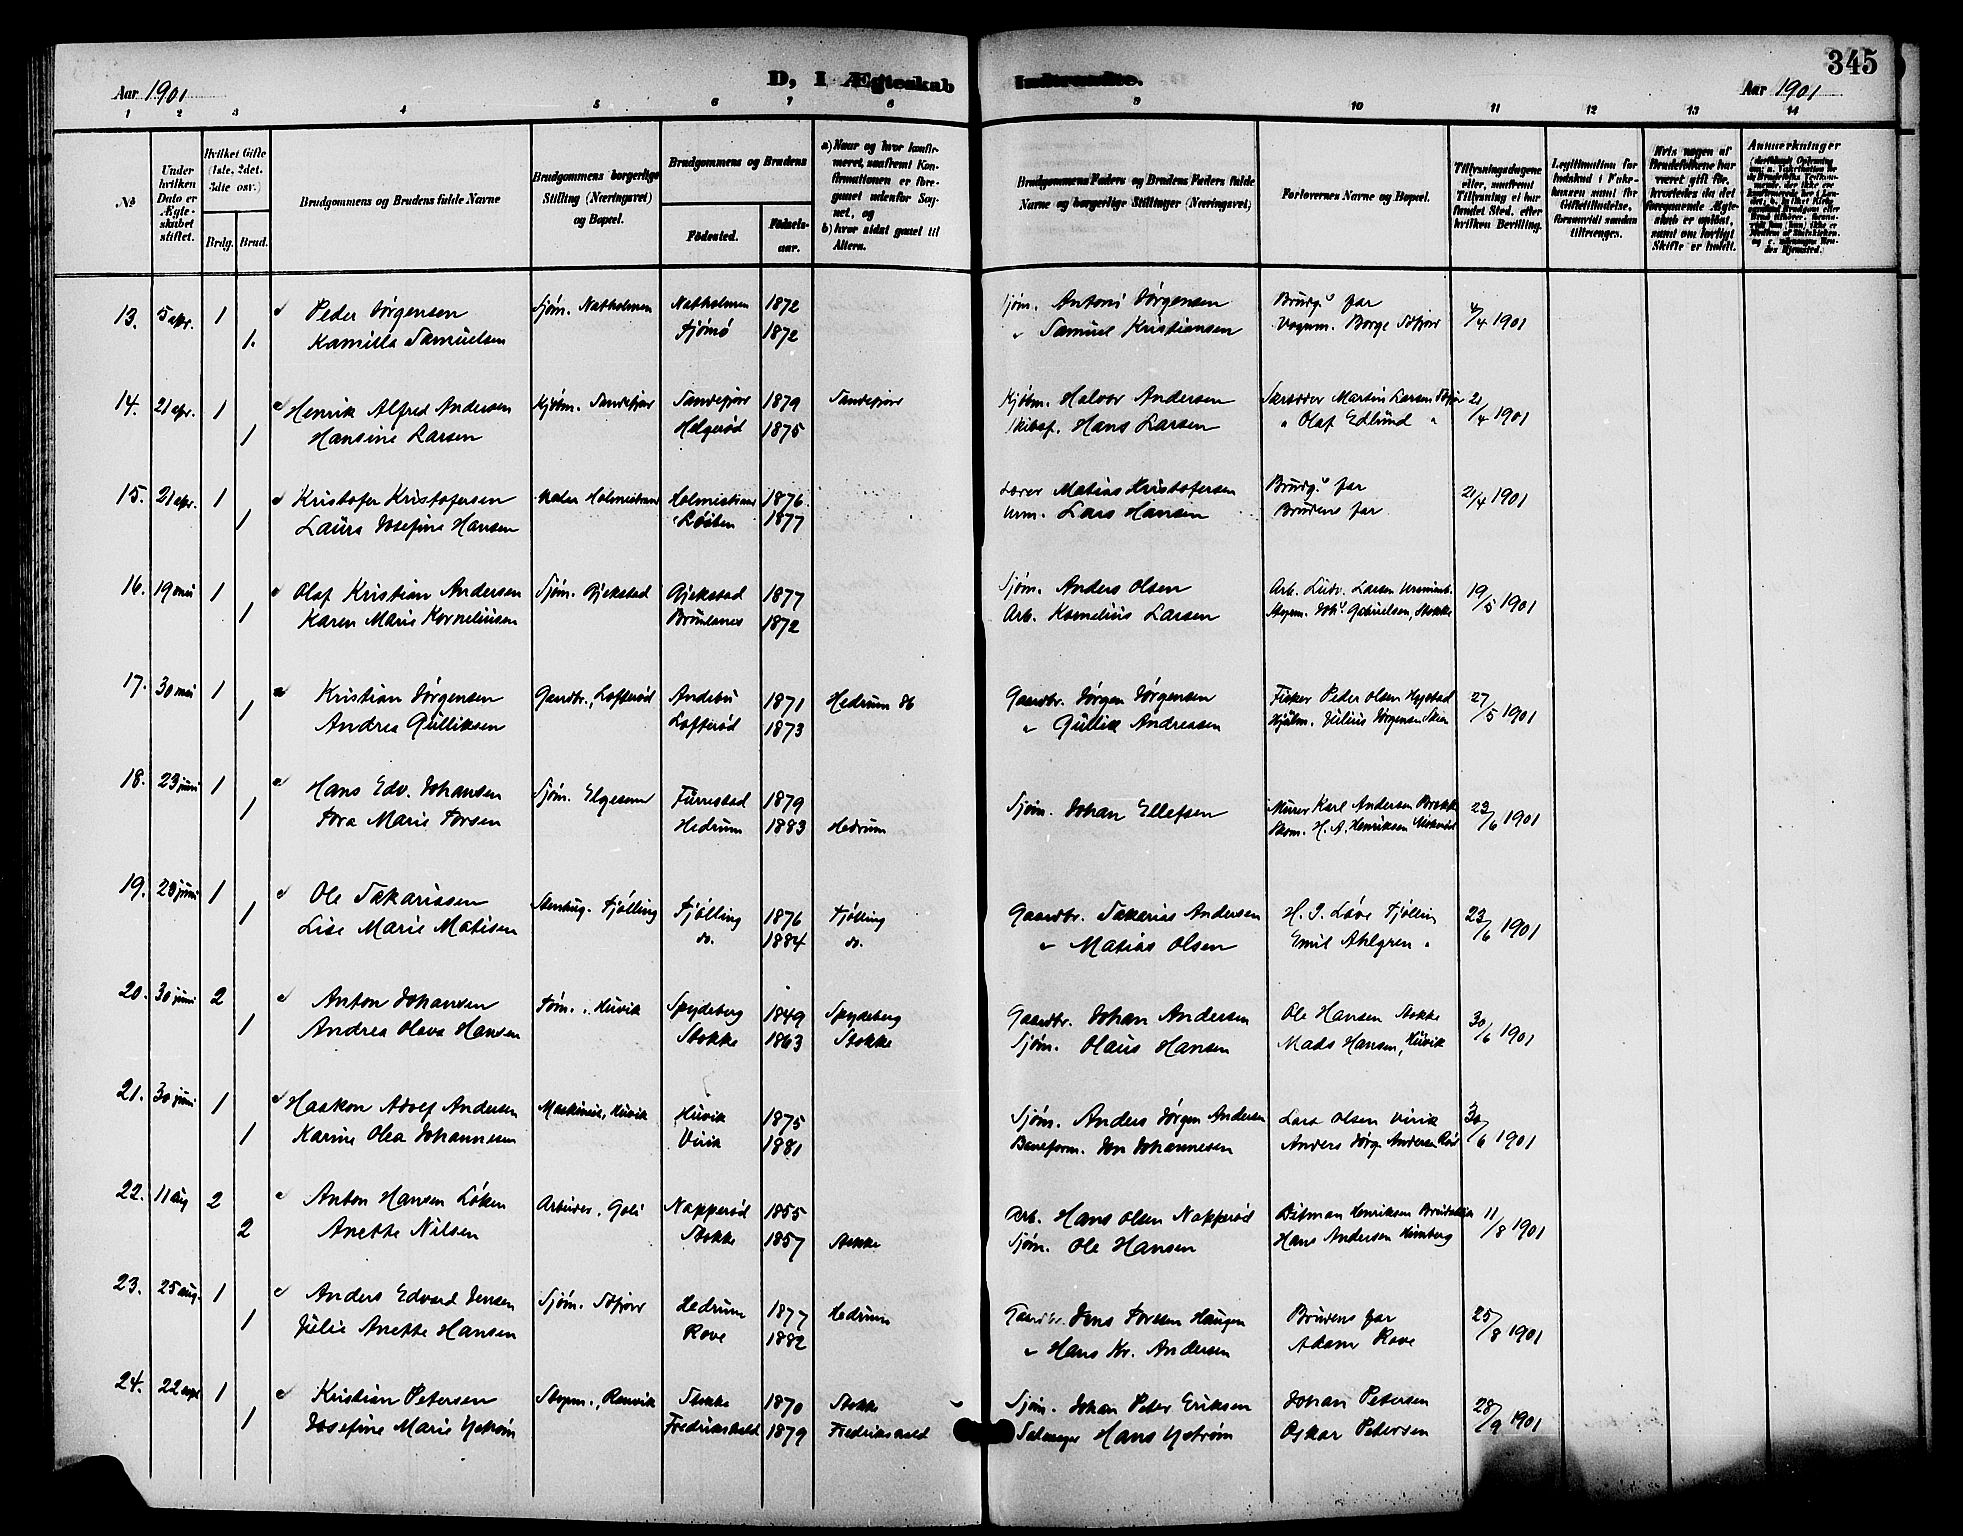 345
D, I Ægteskab Indtraadte.
Aar 1901
Aar 1901
1 2 3 4 5 6 7 8 9 10 11 12 13 14
No
Under hvilken Dato er Ægteskabet stiftet.
Hvilket Gifte (1ste, 2det, 3die osv.)
Brdg. Brud.
Brudgommens og Brudens fulde Navne
Brudgommens borgerlige Stilling (Næringsvei) og Bopæl.
Brudgommens og Brudens
Fødested.
Fødselsaar.
a) Naar og hvor konfirmeret, saafremt Konfirmationen er foregaaet udenfor Sognet, og
b) hvor sidst gaaet til Alters.
Brudgommens Faders og Brudens Faders fulde Navne og borgerlige Stillinger (Næringsvei)
Forlovernes Navne og Bopæl.
Tillysningsdagene eller, saafremt Tillysning ei har fundet Sted, efter hvilken Bevilling.
Legitimation for Indskud i Enkekassen samt for Giftetilladelse, forsaavidt saadan tiltrænges.
Hvis nogen af Brudefolkene har været gift før, hvorledes da det foregaaende Ægteskab er opløst, samt om lovligt Skifte er holdt.
Anmerkninger
13. 5 apr. 1 Peder Jørgensen Sjøm. Natholmen Natholmen 1872 Sjøm. Antoni Jørgensen Brudg.s far 4/4 1901
1. Kamilla Samuelsen Tjømø 1872 " Samuel Kristiansen Vognm. Borge Sfjor
14. 21 apr. 1 Henrik Alfred Andersen Kjøbm. Sandefjor Sandefjor 1879 Sandefjor Kjøbm. Halvor Andersen Skrædder Martin Larsen Sfjor 21/4 1901
1 Hansine Larsen Helgerød 1875 Skibsf. Hans Larsen " Olaf Edlund "
15. 21 apr. 1 Kristofer Kristofersen Maler Holmestrand Holmestrand 1876 Lærer Matias Kristofersen Brudg.s far 21/4 1901
1 Laura Josefine Hansen Løiten 1877 Urm. Lars Hansen Brudens far
16. 19 mai 1 Olaf Kristian Andersen Sjøm. Gjekstad Gjekstad 1877 Sjøm. Anders Olsen Arb. Ludv. Larsen 19/5 1901
1 Karen Marie Korneliusen Brunlanes 1872 Arb. Kornelius Larsen Styrm. Joh.s Gabrielsen, Stokke
17. 30 mai 1 Kristian Jørgensen Gaardbr., Lofterød Andebu 1871 Hedrum 86 Gaardbr. Jørgen Jørgensen Fisker Peder Olsen Hystad 27/5 1901
1 Andrea Gulliksen Lofterød 1873 " Gullik Andreassen Kjøbm. Julius Jørgensen
18. 23 juni 1 Hans Edv. Johansen Sjøm. Elgesem Furrestad 1879 Sjøm. Johan Ellefsen Murer Karl Andersen 23/6 1901
1 Tora Marie Torsen Hedrum 1883 Hedrum Skom. H. A. Henriksen
19. 23 juni 1 Ole Sakariassen Stenhug. Tjølling Tjølling 1876 Tjølling Gaardbr. Sakarias Andersen H. J. Løve Tjølling 23/6 1901
1 Lise Marie Matisen do. 1884 do. " Matias Olsen Emil Ahlgren "
20. 30 juni 2 Anton Johansen Tøm., Huvik Spydeberg 1849 Spydeberg Gaardbr. Johan Andersen Ole Hansen Stokke 30/6 1901
1 Andrea Olava Hansen Stokke 1863 Stokke Sjøm. Olaus Hansen Mads Hansen, Huvik
21. 30 juni 1 Haakon Adolf Andersen Maskinist, Huvik Huvik 1875 Sjøm. Anders Jørgen Andersen Lars Olsen Virik 30/6 1901
1 Karine Olea Johannesen Virik 1881 Baneform. Jon Johannesen Anders Jørg. Andersen
22. 11 aug 2 Anton Hansen Løken Arbeider, Goli Napperød 1855 Arb. Hans Olsen Napperød Bitman Henriksen 11/8 1901
2 Anette Nilsen Stokke 1857 Stokke Sjøm. Ole Hansen Hans Andersen Himberg
23. 25 aug. 1 Anders Edvard Jensen Sjøm. Sfjor Hedrum 1877 Hedrum Gaardbr. Jens Torsen Haugen Brudens far 25/8 1901
1 Julie Anette Hansen Rove 1882 " Hans Kr. Andersen Adam Rove
24. 22 sept 1 Kristian Petersen Styrm., Ranvik Stokke 1870 Stokke Sjøm. Johan Peter Eriksen Johan Petersen 28/9 1901
1 Josefine Marie Ystrøm Fredrikshald 1879 Fredrikshald Hans Ystrøm Oskar Petersen